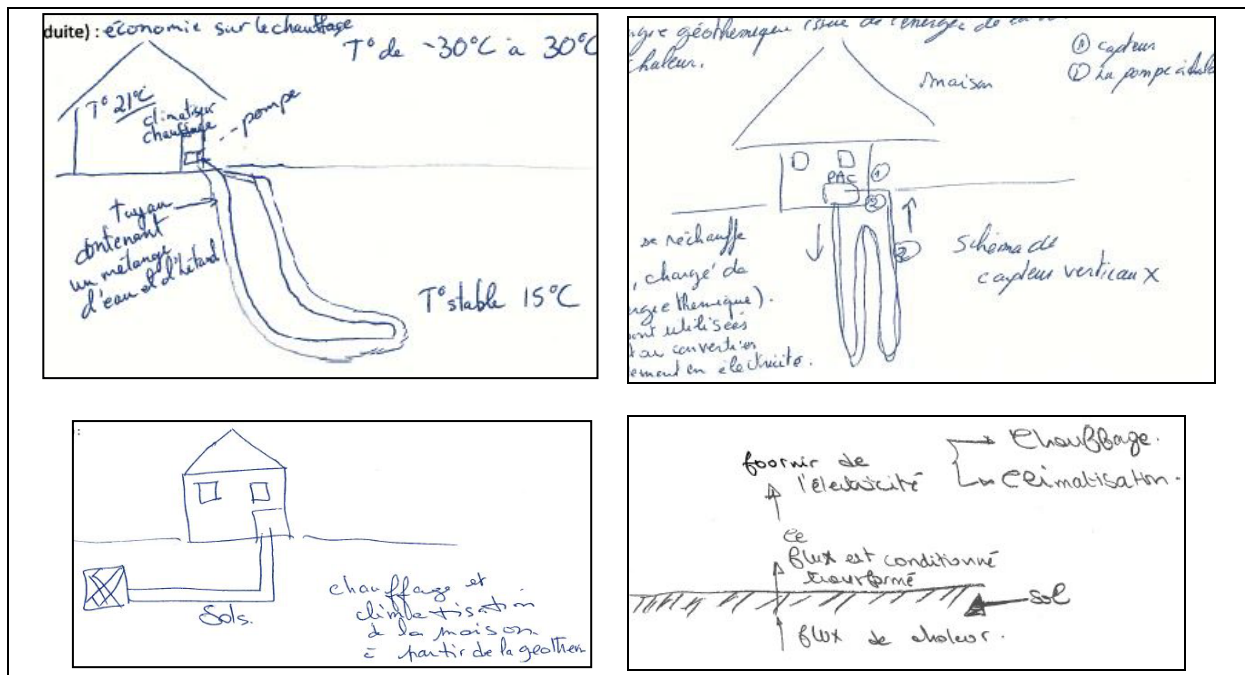 duite) : économie sur le chauffage
T° de -30°C à 30°C
T° 21°C
climatiseur
chauffage
pompe
tuyau
contenant
un mélange
d'eau et d'
T° stable 15°C
géothermique issue de l'énergie de
chaleur.
① capteur
② La pompe à
maison
PAC
①
②
②
se réchauffe
, chargé de
thermique).
utilisées
ou converties
en électricité.
Schéma de
capteur verticaux
:
Sols.
chauffage et
climatisation
de la maison
à partir de la géother
Chauffage.
Climatisation.
foornir de
l'électricité
Ce
flux est conditionné
transformé
sol
flux de chaleur.